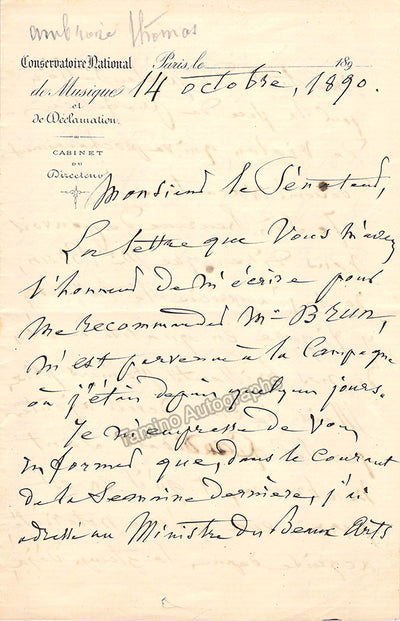 ambroise thomas
Conservatoire National
de Musique
et
de Déclamation.
CABINET
DU
Directeur
Paris, le 189
14 octobre, 1890.
Monsieur le Sénateur,
La lettre que Vous m'avez
fait l'honneur de m'écrire pour
me recommander Mr BRUN,
m'est parvenue à la Campagne
où j'étais depuis quelques jours.
Je m'empresse de Vous
informer que, dans le courant
de la Semaine dernière, j'ai
adressé au Ministre des Beaux Arts
Tamino Autographs